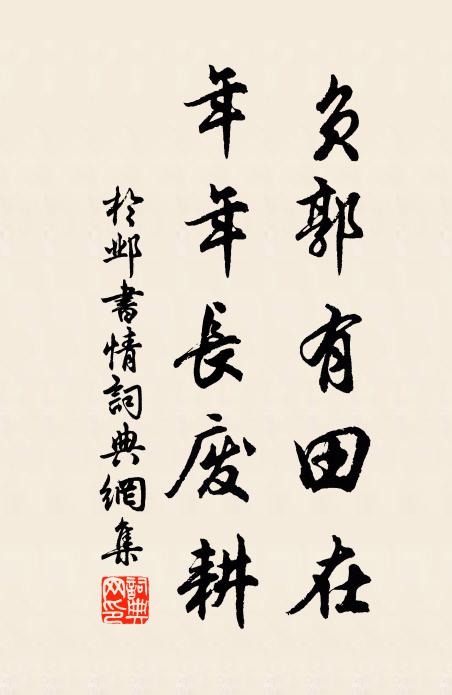 负郭有田在
年年長废耕
於邺書情詞典網集
詞典
网印